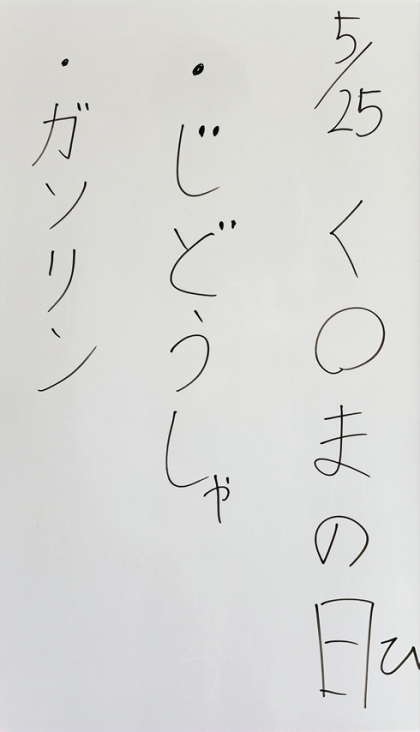 5/25 く〇まの日
ひ
・じどうしゃ
・ガソリン